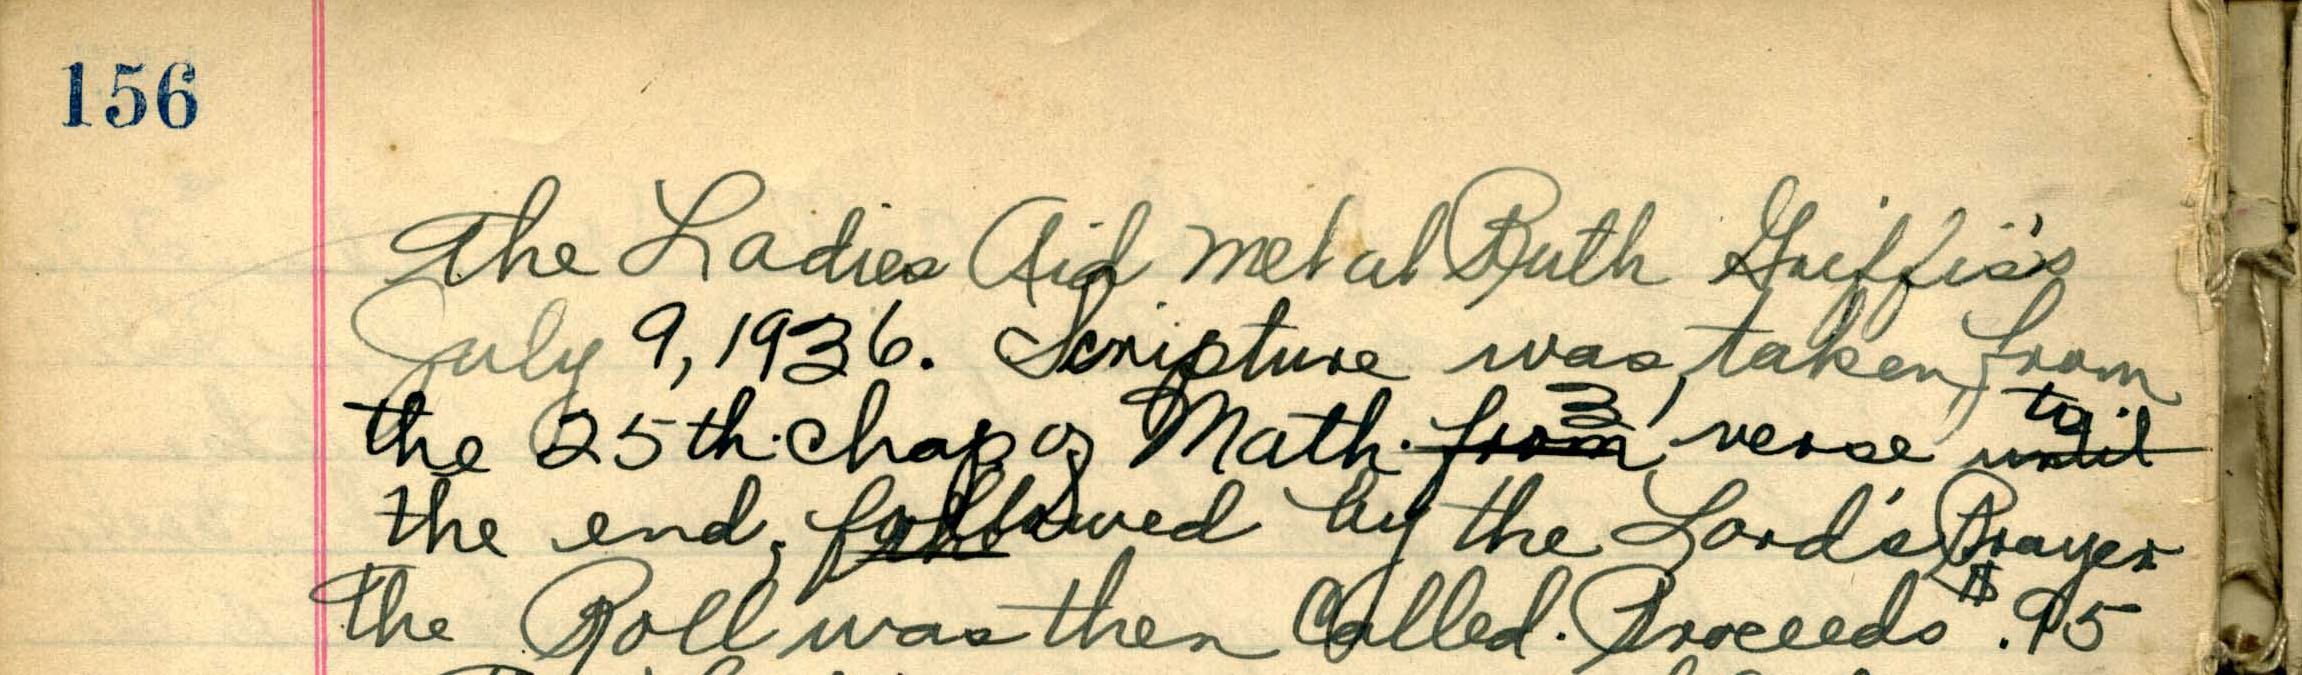 156
The Ladies Aid met at Ruth Griffis's
July 9, 1936. Scripture was, taken, from
the 25th. Chap of Math. from 3, verse until to
the end, followed by the Lord's Prayer
The Roll was then Called. Proceeds $.95